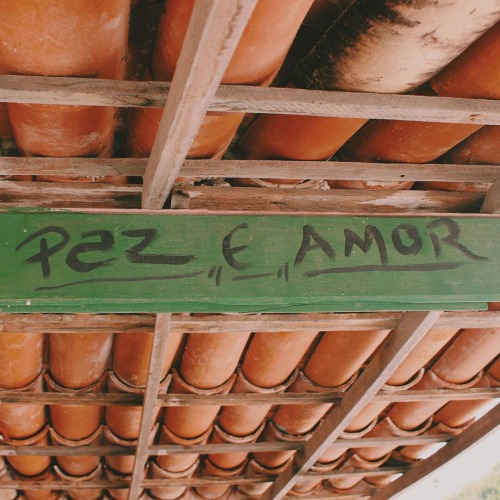 PaZ "E" AMOR